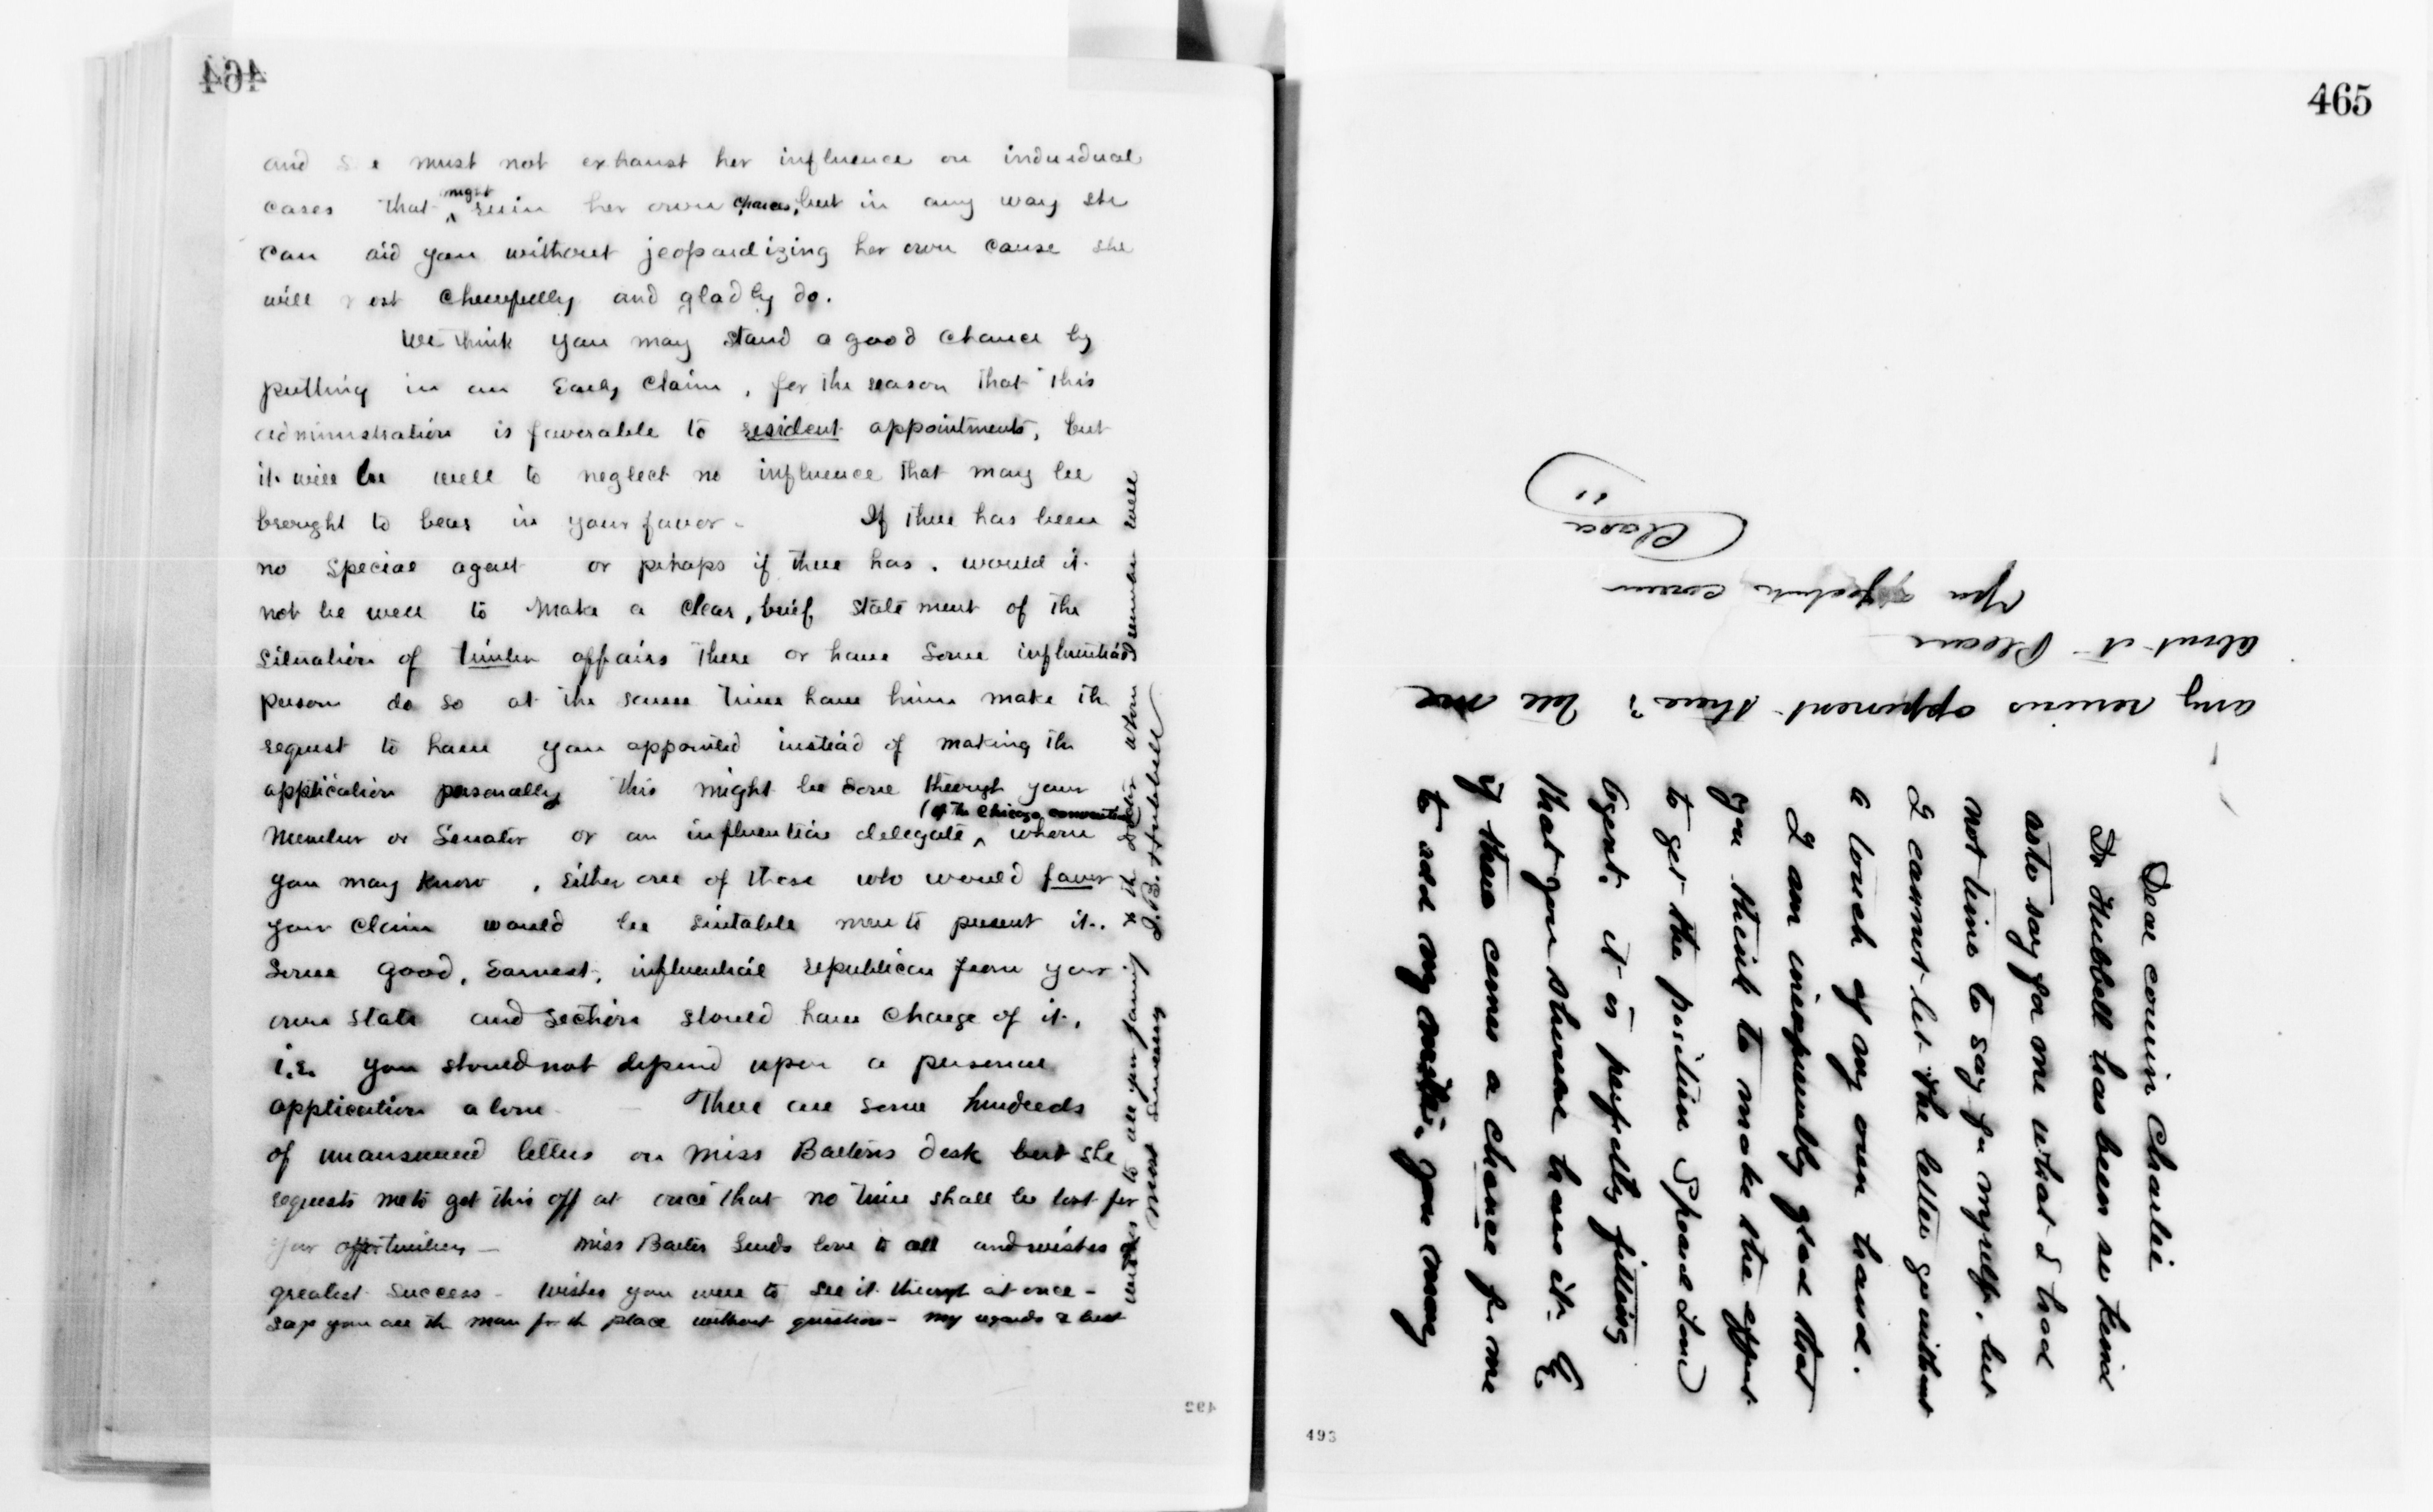 464
and s e must not exhaust her influence on individual
cases that might ruin her own chances, but in any way she
can aid you without jeopardizing her own cause she
will most cheerfully and gladly do.
We think you may stand a good chance by
putting in an Early Claim, for the reason that this
administration is favorable to resident appointments, but
it will be well to neglect no influence that may be
brought to bear in your favor - If there has been
no special agent or perhaps if there has, would it
not be well to make a clear, brief statement of the
situation of timber affairs there or have some influential
person do so at the same time have him make the
request to have you appointed instead of making the
application personally this might be done through your
(of the Chicago convention)
member or Senator or an influential delegate, ^ whom
you may know, Either one of these who would favor
your claim would be suitable men to present it.
Some good, Earnest, influential republican from your
own state and section should have charge of it,
i.e. you should not depend upon a personal
application alone - There are some hundreds
of unanswered letters on Miss Barton's desk but she
requests me to get this off at once that no time shall be lost for
your opportunities - Miss Barton sends love to all and wishes of
greatest success - wishes you were to see it through at once -
says you are the man for the place without question - my regards & best
wishes to all your family & the Doctor whom I remember well
Most Sincerely J.B. Hubbell
492
465
Dear cousin Charlie
Dr Hubbell has been so kind
as to say for me what I had
not time to say for myself, but
I cannot let the letter go without
a touch of my own hand.
I am unexpressibly glad that
you think to make the effort
to get the position Special Land
Agent. it is perfectly fitting
that you should have it. &
if there comes a chance for me
to add my mite, you may
any serious opponent there? Tell me
about it Please
Your affectionate cousin
Clara
493